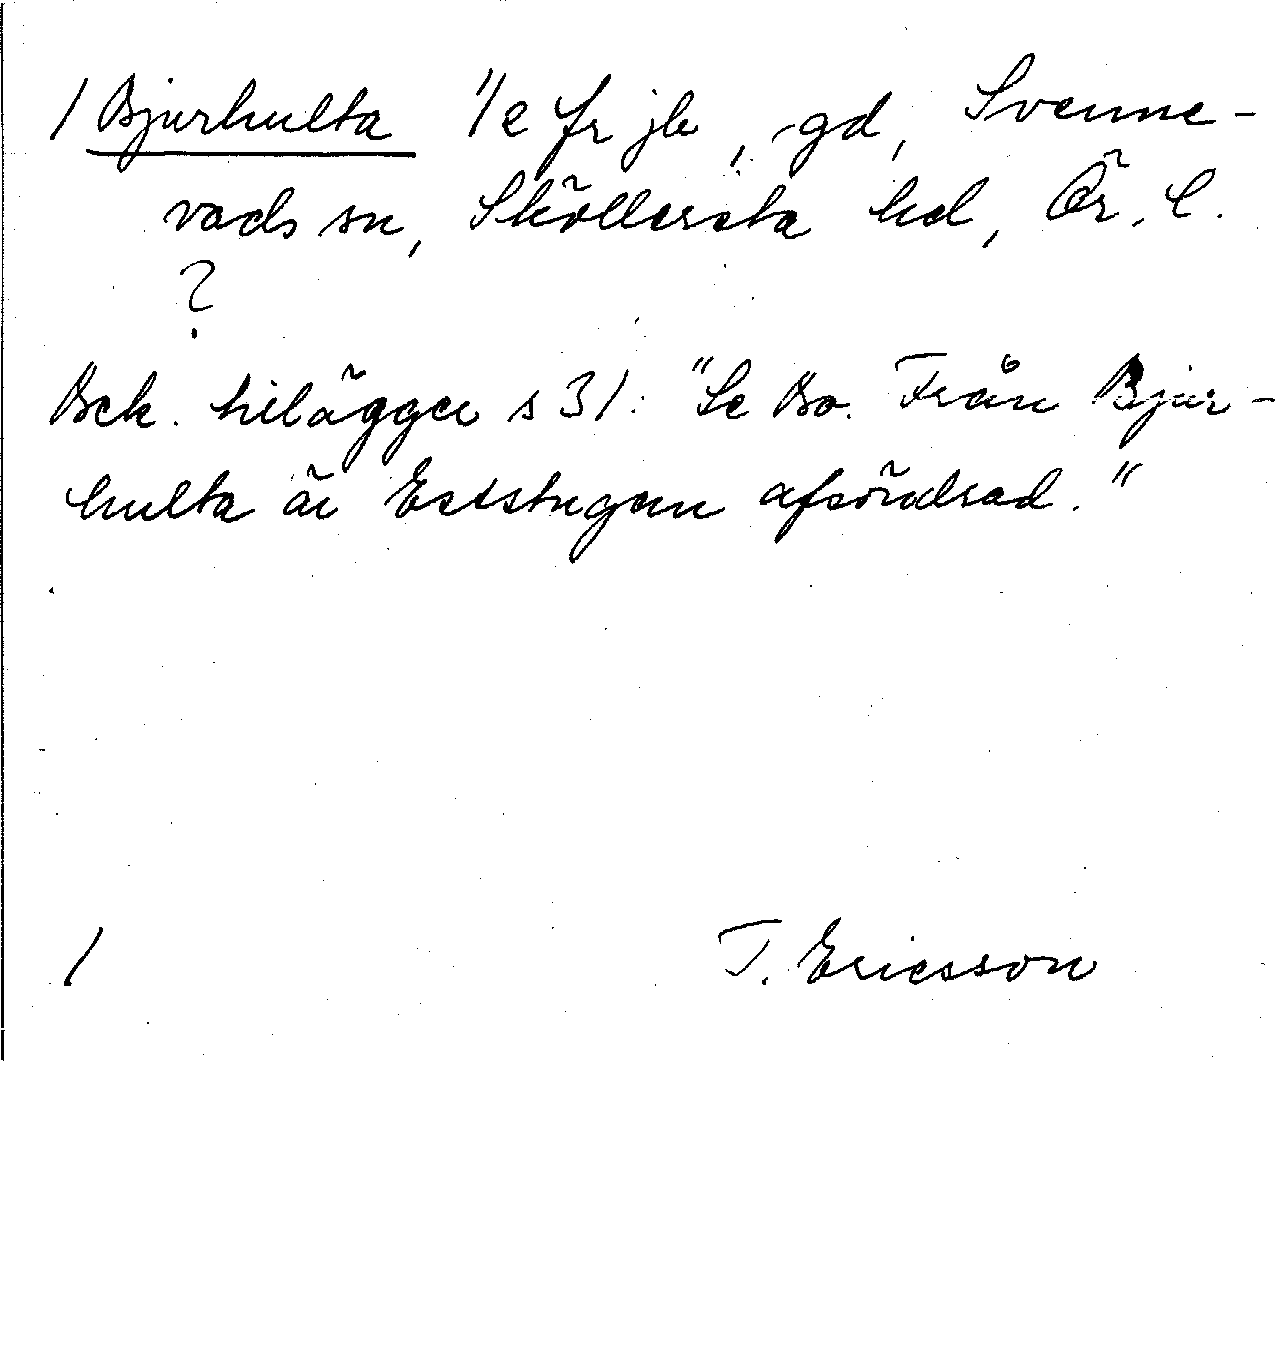 / Bjurhulta 1/2 fr jb, gd, Svenne-
vads sn, Sköllersta hd, Ör. l.
?
Bek. tillägger s 31: "Se Bo. Från Bjur-
hulta är Eststugan afsöndrad."
/ T. Ericsson